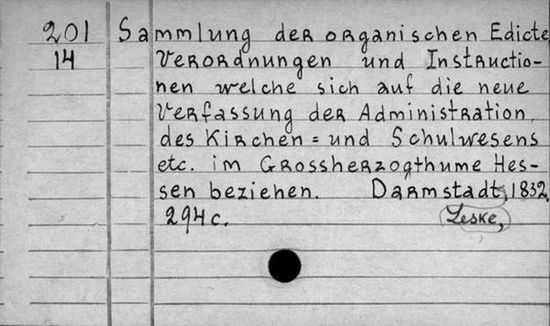 201 Sammlung der organischen Edicte
14 Verordnungen und Instructio-
nen welche sich auf die neue
Verfassung der Administration,
des Kirchen = und Schulwesens
etc. im Grossherzogthume Hes-
sen beziehen. Darmstadt, 1832,
294 c. Leske,